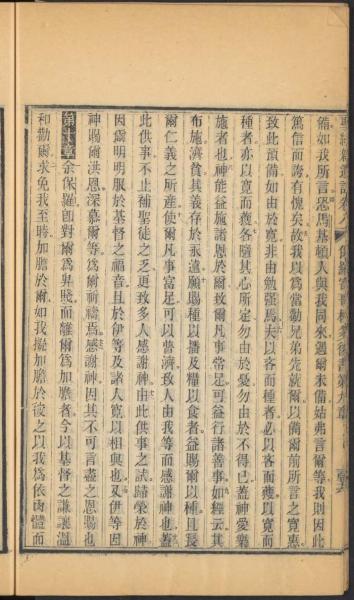 備如我所言恐馬基頓人與我同來遇爾未備姑弗言爾等我則因此
篤信而誇有愧矣故我以為當勸兄弟先就爾以備爾前所言之寬惠
致此須備如由於寬非由勉強焉夫以吝而種者必以吝而穫以寬而
種者亦以寬而穫各隨其心所定勿由於憂勿由於不得已蓋神愛樂
施者也神能益施諸恩於爾致爾凡事常足可益行諸善事如經云其
布施濟貧其義存於永遠願賜種以播及糧以食者益賜爾以種且長
爾仁義之所產使爾凡事富足可以普濟致人由我等而感謝神也蓋
此供事不止補聖徒之乏更致多人感謝神由此供事之試歸榮於神
因爾明明服於基督之福音且於伊等及諸人寬以相與也又伊等因
神賜爾洪恩深慕爾等為爾祈禱焉感謝神因其不可言盡之恩賜也
第十章 余保羅卽對爾為卑賤而離爾為加膽者今以基督之謙讓溫
和勸爾求免我至時加膽於爾如我擬加膽於彼之以我為依肉體而